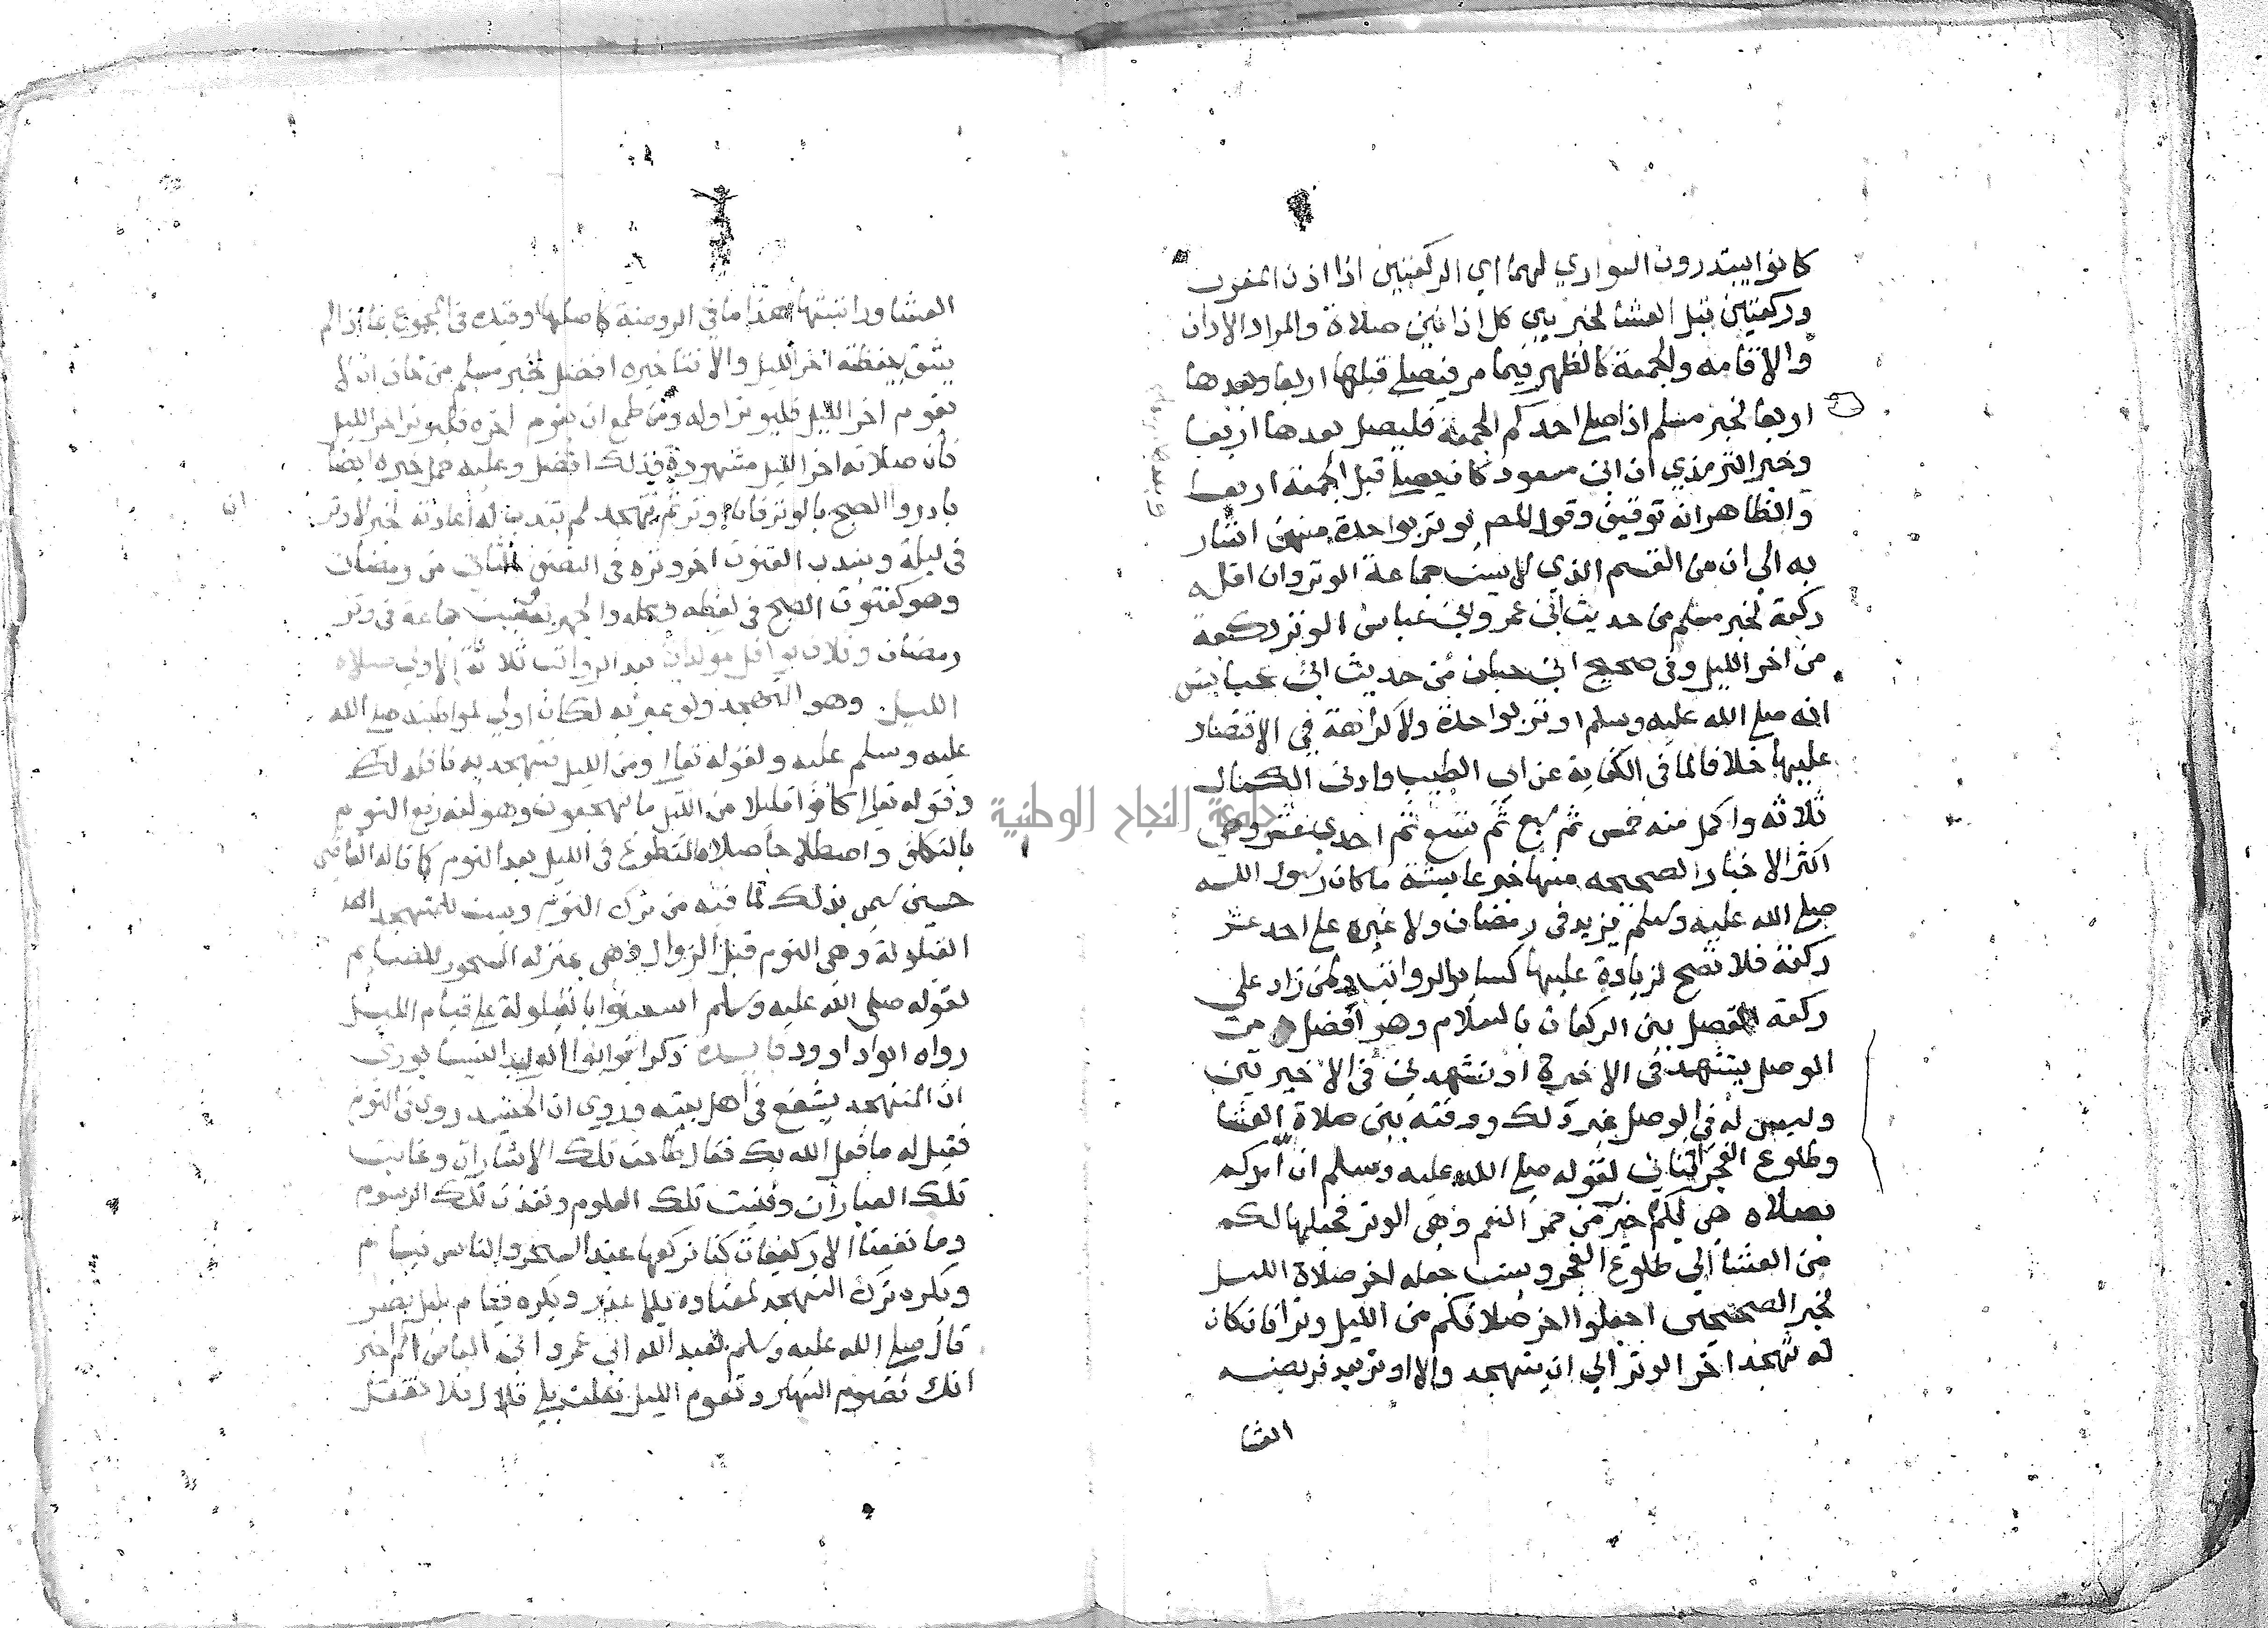 كانوا يبتدرون السواري لهما اي الركعتين اذا اذن المغرب
وركعتين قبل العشا لخبر بين كل اذانين صلاة والمراد الاذان
والاقامه والجمعة كالظهر فيما مر فيصلي قبلها اربعا وبعدها
اربعا لخبر مسلم اذا صلي احدكم الجمعة فليصل بعدها اربعا
وخبر الترمذي ان ابن مسعود كان يصلي قبل الجمعة اربعا
والظاهر انه توقيف وقول المص يوتر بواحدة منهن اشار
به الي ان من القسم الذي لا يسن جماعة الوتر وان اقله
ركعة لخبر مسلم من حديث ابن عمر وابن عباس الوتر ركعة
من اخر الليل وفي صحيح ابن حبان من حديث ابن عباس
انه صلي الله عليه وسلم اوتر بواحدة ولا كراهة في الاقتصار
عليها خلافا لما في الكفاية عن ابي الطيب وادني الكمال
ثلاثه واكمل منه خمس ثم سبع ثم تسع ثم احدي عشر وهي
اكثر الاخبار الصحيحه منها خبر عايشة ما كان رسول الله
صلي الله عليه وسلم يزيد في رمضان ولا غيره علي احد عشر
ركعة فلا تصح لزيادة عليها كساير الرواتب ولمن زاد علي
ركعة الفصل بين الركعات بالسلام وهو افضل من
الوصل بتشهد في الاخيرة او تشهدين في الاخيرتين
وليس له في الوصل غير ذلك ووقته بين صلاة العشا
وطلوع الفجر الثاني لقوله صلي الله عليه وسلم ان امدكم
بصلاه هي لكم خير من حمر النعم وهي الوتر فجعلها لكم
من العشا الي طلوع الفجر ويسن جعله اخر صلاة الليل
لخبر الصحيحين اجعلوا اخر صلاتكم من الليل وترا فان كان
له تهجد اخر الوتر الي ان يتهجد والا اوتر بعد فريضه
العشا
العشا وراتبتها هذا ما في الروضة كاصلها وقيده في المجموع بما اذا لم
يثق بيقظته اخر الليل والا فتاخيره افضل لخبر مسلم من خاف ان لا
يقوم اخر الليل فليوتر اوله ومن طمع ان يقوم اخره فليوتر اخر الليل
فان صلاته اخر الليل مشهودة وذلك افضل وعليه حمل خبره ايضا
بادروا الصبح بالوتر فان اوتر ثم تهجد لم تندب له اعادته لخبر لا وتر
ان
في ليلة ويندب القنوت اخر وتره في النصف الثاني من رمضان
وهو كقنوت الصبح في لفظه ومحله والجهر به ويسن جماعة في وتر
رمضان وثلاث نوافل مولدات بعد الرواتب ثلاثة الاولي صلاه
الليل وهو التهجد ولو عبر به لكان اولي لمواظبته صلي الله
عليه وسلم عليه ولقوله تعالي ومن الليل فتهجد به نافلة لك
وقوله تعالي كانوا قليلا من الليل ما يهجعون وهو لغة رفع النوم
بالتكلف واصطلاحا صلاة التطوع في الليل بعد النوم كما قاله القاضي
حسين سمي بذلك لما فيه من ترك النوم ويسن للمتهجد
القيلولة وهي النوم قبل الزوال وهي بمنزلة السحور للصايم
لقوله صلي الله عليه وسلم استعينوا بالقيلولة علي قيام الليل
رواه ابو داوود فايدة ذكر ابو الوليد النيسابوري
ان المتهجد يشفع في اهل بيته وروي ان الجنيد روي في النوم
فقيل له ما فعل الله بك فقال طاحت تلك الاشارات وغابت
تلك العبارات وفنيت تلك العلوم ونفذت تلك الرسوم
وما نفعنا الا ركيعات كنا نركعها عند السحر والناس نيام
ويكره ترك التهجد لمعتاده بلا عذر ويكره قيام بليل يضر
قال صلي الله عليه وسلم لعبد الله ابن عمرو ابن العاص الم اخبر
انك تصوم النهار وتقوم الليل فقلت بلي قال فلا تفعل
جامعة النجاح الوطنية